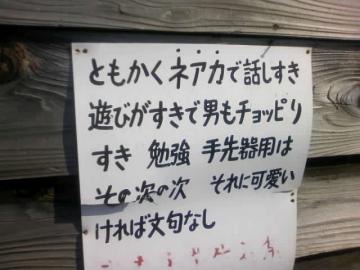 ともかくネアカで話しすき
遊びがすきで男もチョッピり
すき 勉強 手先器用は
その次の次 それに可愛い
ければ文句なし